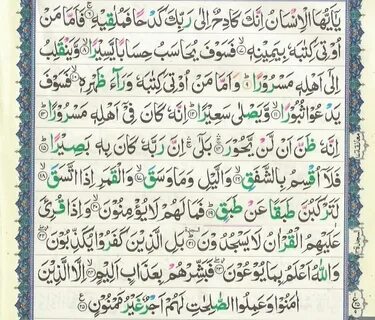 يٰۤاَيُّهَا الْاِنْسَانُ اِنَّكَ كَادِحٌ اِلٰى رَبِّكَ كَدْحًا فَمُلٰقِيْهِ ۟ۚ فَاَمَّا مَنْ
اُوْتِيَ كِتٰبَهٗ بِيَمِيْنِهٖ ۟ۙ فَسَوْفَ يُحَاسَبُ حِسَابًا يَّسِيْرًا ۟ۙ وَّيَنْقَلِبُ
اِلٰۤى اَهْلِهٖ مَسْرُوْرًا ۟ؕ وَاَمَّا مَنْ اُوْتِيَ كِتٰبَهٗ وَرَآءَ ظَهْرِهٖ ۟ۙ فَسَوْفَ
يَدْعُوْا ثُبُوْرًا ۟ۙ وَّيَصْلٰى سَعِيْرًا ۟ؕ اِنَّهٗ كَانَ فِيْۤ اَهْلِهٖ مَسْرُوْرًا ۟ؕ
اِنَّهٗ ظَنَّ اَنْ لَّنْ يَّحُوْرَ ۟ۚۛ بَلٰۤى ۛۚ اِنَّ رَبَّهٗ كَانَ بِهٖ بَصِيْرًا ۟ؕ
فَلَاۤ اُقْسِمُ بِالشَّفَقِ ۟ۙ وَالَّيْلِ وَمَا وَسَقَ ۟ۙ وَالْقَمَرِ اِذَا اتَّسَقَ ۟ۙ
لَتَرْكَبُنَّ طَبَقًا عَنْ طَبَقٍ ۟ؕ فَمَا لَهُمْ لَا يُؤْمِنُوْنَ ۟ۙ وَاِذَا قُرِئَ
عَلَيْهِمُ الْقُرْاٰنُ لَا يَسْجُدُوْنَ ۟ؕ بَلِ الَّذِيْنَ كَفَرُوْا يُكَذِّبُوْنَ ۟ؗۖ
وَاللّٰهُ اَعْلَمُ بِمَا يُوْعُوْنَ ۟ؗۖ فَبَشِّرْهُمْ بِعَذَابٍ اَلِيْمٍ ۟ۙ اِلَّا الَّذِيْنَ
اٰمَنُوْا وَعَمِلُوا الصّٰلِحٰتِ لَهُمْ اَجْرٌ غَيْرُ مَمْنُوْنٍ ۟